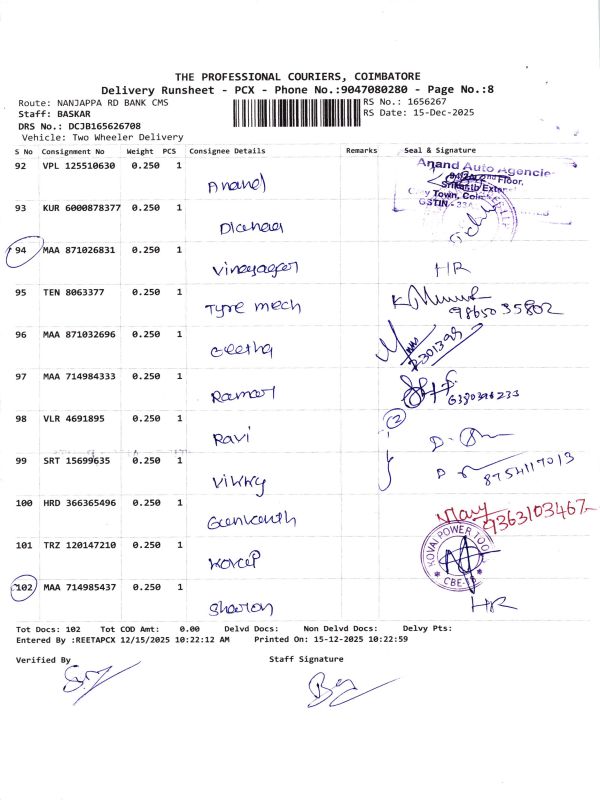 THE PROFESSIONAL COURIERS, COIMBATORE
Delivery Runsheet - PCX - Phone No.:9047080280 - Page No.:8
Route: NANJAPPA RD BANK CMS
RS No.: 1656267
Staff: BASKAR
RS Date: 15-Dec-2025
DRS No.: DCJB165626708
Vehicle: Two Wheeler Delivery
S No Consignment No Weight PCS Consignee Details Remarks Seal & Signature
92 VPL 125510630 0.250 1
Anand
Anand Auto Agencies
Floor,
Srikanth Exten
Town, Coim
GSTIN - 33A
93 KUR 6000878377 0.250 1
94 MAA 871026831 0.250 1
Vinayagar HR
95 TEN 8063377 0.250 1
Tyre mech
9865035802
96 MAA 871032696 0.250 1
Geetha
97 MAA 714984333 0.250 1
Ramar
98 VLR 4691895 0.250 1
Ravi
2
99 SRT 15699635 0.250 1
Vikky
8754117013
100 HRD 366365496 0.250 1
9363103467
101 TRZ 120147210 0.250 1
KOVAI POWER TOO
CBE-
102 MAA 714985437 0.250 1
Sharon HR
Tot Docs: 102 Tot COD Amt: 0.00 Delvd Docs: Non Delvd Docs: Delvy Pts:
Entered By :REETAPCX 12/15/2025 10:22:12 AM Printed On: 15-12-2025 10:22:59
Verified By Staff Signature